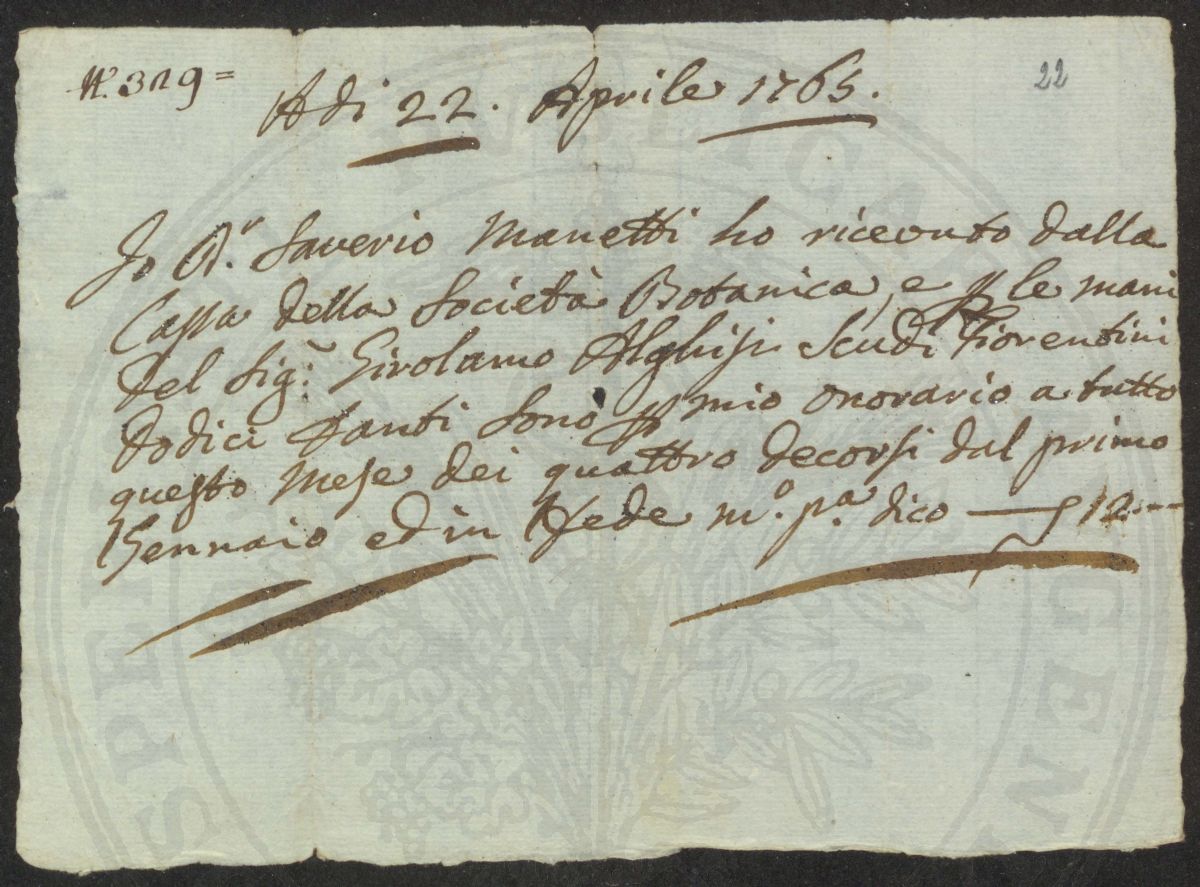 N.° 319=
22
Adi 22. Aprile 1765.
Io D.r Saverio Manetti ho riceuto dalla
Cassa della Società Botanica, e p le mani
del Sig.r Girolamo Alghisi Scudi Fiorentini
dodici tanti sono p mio onorario a tutto
questo Mese dei quattro decorsi dal primo
Gennaio ed in Fede m.o p.a dico — 12---